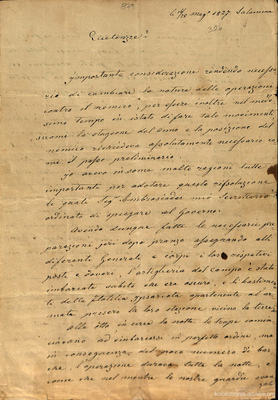 6/18 Magg. 1827. Salamina
Eccellenze!
importante considerazione rendendo necessa-
rio di cambiare la natura delle operazioni
contro il nemico, per essere inoltre nel mede-
simo tempo in istato di fare tale movimenti
siccome la stagione del anno e la posizione del
nemico richiedeva assolutamente necessario
il passo preliminario.
Io aveva in somma molte ragioni tutte
importante per adottare questa risoluzione
le quale Sig. Ambasciador mio Secretario
ordinato di spiegare al Governo.
Avendo dunque fatto le necessarie pre-
parazioni jeri dopo pranzo assegnando alli
differente Generali e corpi i loro rispettivi
poste e doveri, l'artiglieria del campo è stata
imbarcata subito che era oscuro, e i bastimen-
ti della flotilla Ipsariota apartenente al ar-
mata presero la loro stazione vicino la terra.
alla otto in circa la notte le trope comin-
ciavano ad imbarcarsi in perfetto ordine, ma
in conseguenza del poco numero di bar-
che l'operazione durava tutta la notte, e
come che nel mentre le nostre guardie